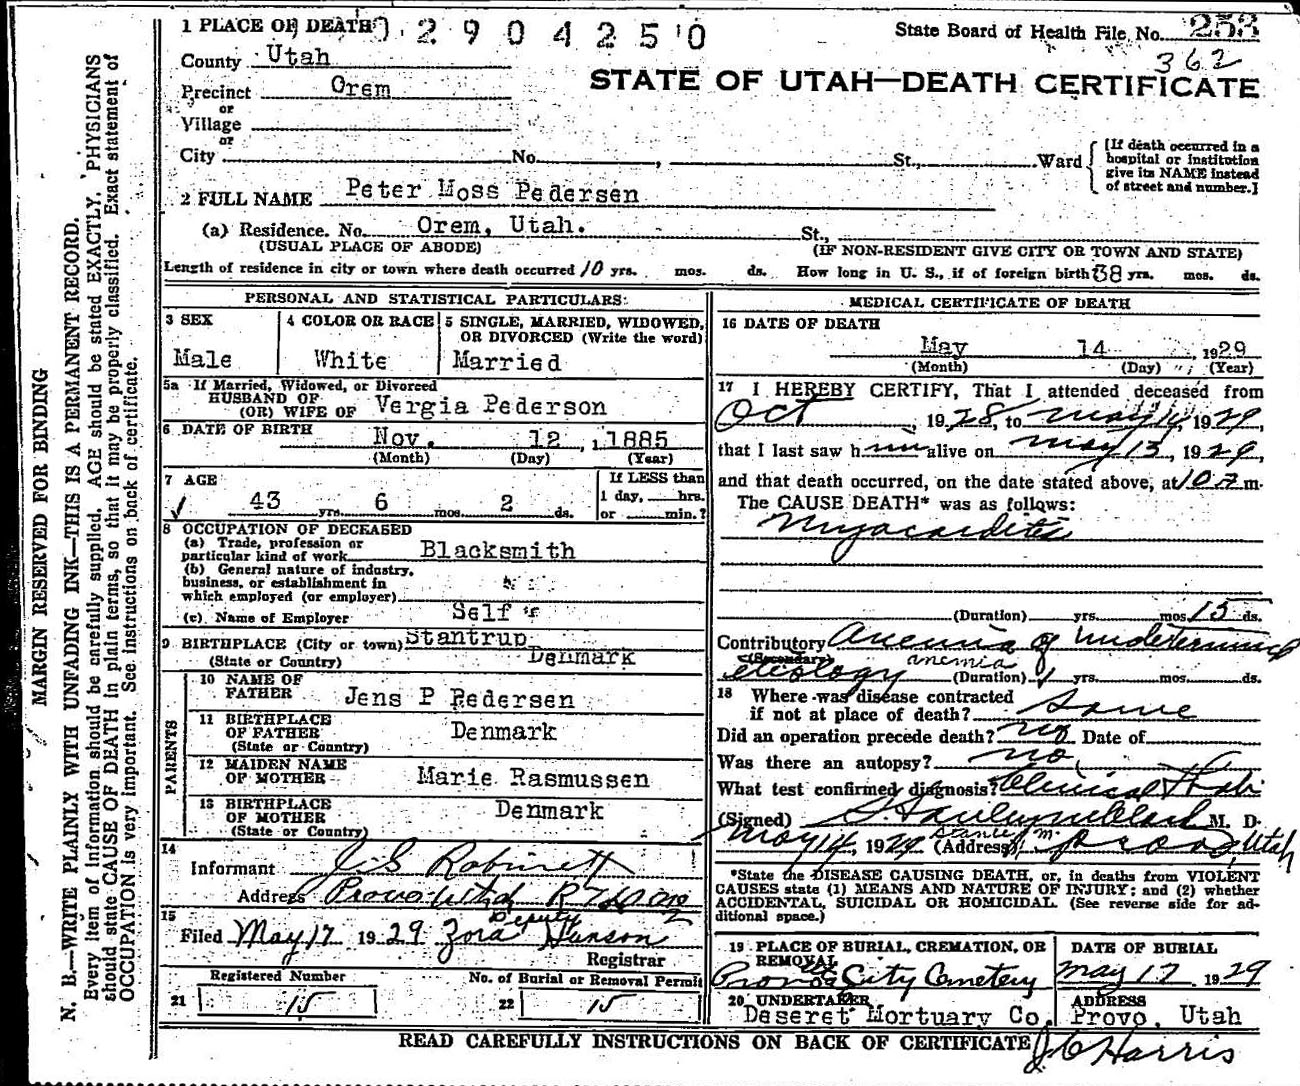 1 PLACE OF DEATH
2904250
State Board of Health File No. 253
362
County Utah
STATE OF UTAH—DEATH CERTIFICATE
Precinct Orem
or
Village
or
City No. , St., Ward
[If death occurred in a hospital or institution give its NAME instead of street and number.]
2 FULL NAME Peter Moss Pedersen
(a) Residence. No. Orem, Utah. St.,
(USUAL PLACE OF ABODE) (IF NON-RESIDENT GIVE CITY OR TOWN AND STATE)
Length of residence in city or town where death occurred 10 yrs. mos. ds. How long in U. S., if of foreign birth? 38 yrs. mos. ds.
PERSONAL AND STATISTICAL PARTICULARS:
3 SEX
Male
4 COLOR OR RACE
White
5 SINGLE, MARRIED, WIDOWED, OR DIVORCED (Write the word)
Married
5a If Married, Widowed, or Divorced
HUSBAND OF
(OR) WIFE OF Vergia Pederson
6 DATE OF BIRTH Nov. 12, 1885
(Month) (Day) (Year)
7 AGE
43 yrs. 6 mos. 2 ds.
If LESS than
1 day, hrs.
or min.?
8 OCCUPATION OF DECEASED
(a) Trade, profession or
particular kind of work Blacksmith
(b) General nature of industry,
business, or establishment in
which employed (or employer)
(c) Name of Employer Self
9 BIRTHPLACE (City or town) Stantrup
(State or Country) Denmark
PARENTS
10 NAME OF
FATHER Jens P Pedersen
11 BIRTHPLACE
OF FATHER Denmark
(State or Country)
12 MAIDEN NAME
OF MOTHER Marie Rasmussen
13 BIRTHPLACE
OF MOTHER Denmark
(State or Country)
14
Informant J S Robinett
Address Provo Utah R
15
Filed May 17 1929 Zora Hanson
Deputy
Registrar
Registered Number
21 15
No. of Burial or Removal Permit
22 15
MEDICAL CERTIFICATE OF DEATH
16 DATE OF DEATH
May 14, 1929
(Month) (Day) (Year)
17 I HEREBY CERTIFY, That I attended deceased from
Oct, 1928, to May 14, 1929,
that I last saw him alive on May 13, 1929,
and that death occurred, on the date stated above, at 10 m.
The CAUSE DEATH* was as follows:
Myocarditis
(Duration) yrs. mos. 15 ds.
Contributory Anemia of undetermined
(Secondary)
etiology anemia
(Duration) 1 yrs. mos. ds.
18 Where was disease contracted
if not at place of death? Same
Did an operation precede death? no Date of
Was there an autopsy? no
What test confirmed diagnosis? Clinical & Lab
(Signed) M. D.
May 14, 1929 (Address) Provo, Utah
*State the DISEASE CAUSING DEATH, or, in deaths from VIOLENT
CAUSES state (1) MEANS AND NATURE OF INJURY; and (2) whether
ACCIDENTAL, SUICIDAL OR HOMICIDAL. (See reverse side for ad-
ditional space.)
19 PLACE OF BURIAL, CREMATION, OR
REMOVAL
Provo City Cemetery
DATE OF BURIAL
May 17 1929
20 UNDERTAKER
Deseret Mortuary Co.
ADDRESS
Provo, Utah
READ CAREFULLY INSTRUCTIONS ON BACK OF CERTIFICATE
J C Harris
MARGIN RESERVED FOR BINDING
N. B.—WRITE PLAINLY WITH UNFADING INK—THIS IS A PERMANENT RECORD.
Every item of information should be carefully supplied. AGE should be stated EXACTLY. PHYSICIANS
should state CAUSE OF DEATH in plain terms, so that it may be properly classified. Exact statement of
OCCUPATION is very important. See instructions on back of certificate.